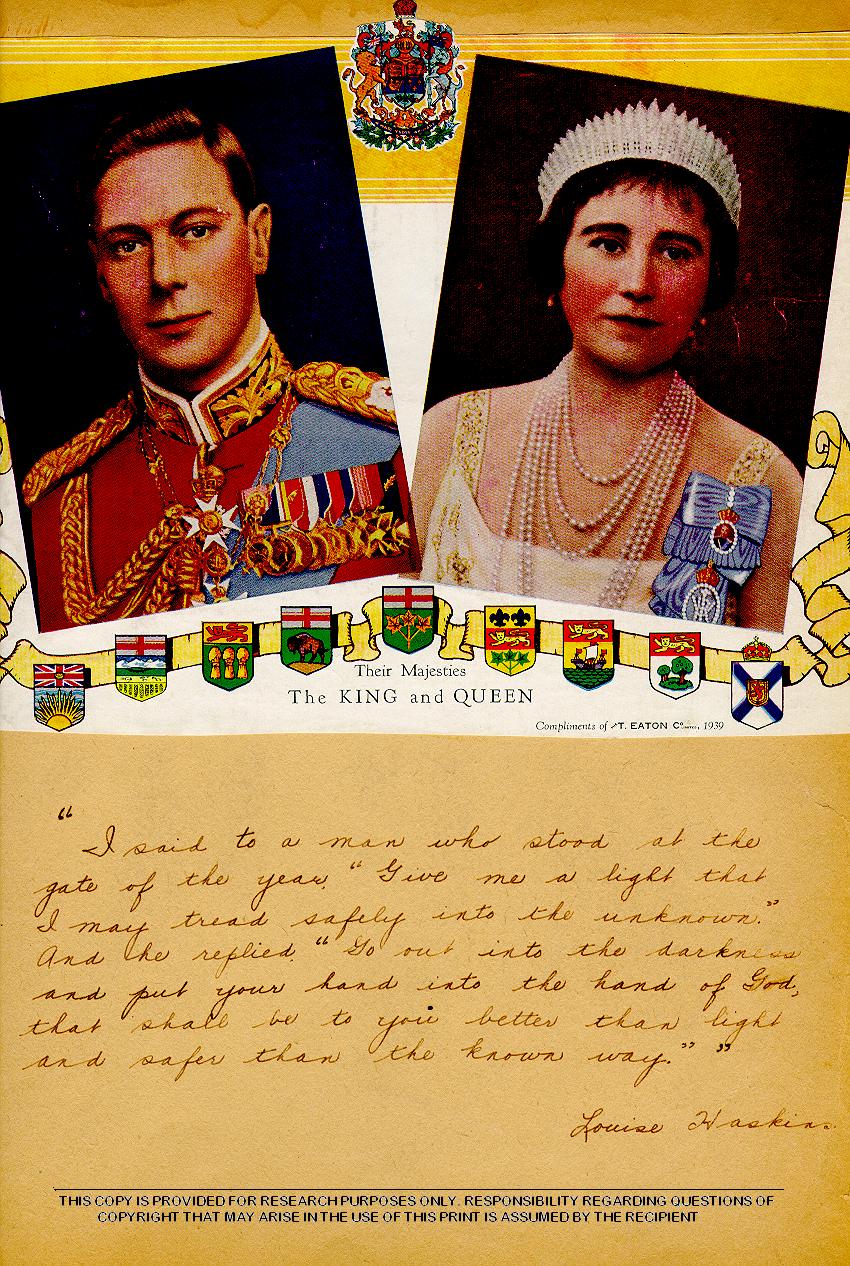 Their Majesties
The KING and QUEEN
Compliments of T. EATON Co, 1939
"
I said to a man who stood at the
gate of the year, "Give me a light that
I may tread safely into the unknown."
And he replied, "Go out into the darkness
and put your hand into the hand of God,
that shall be to you better than light
and safer than the known way." "
Louise Haskins
THIS COPY IS PROVIDED FOR RESEARCH PURPOSES ONLY. RESPONSIBILITY REGARDING QUESTIONS OF
COPYRIGHT THAT MAY ARISE IN THE USE OF THIS PRINT IS ASSUMED BY THE RECIPIENT